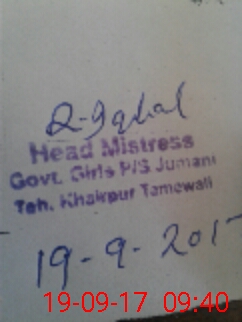 Head Mistress
Govt. Girls P/S Jumani
Teh. Khairpur Tamewali
19-9-201
19-09-17 09:40